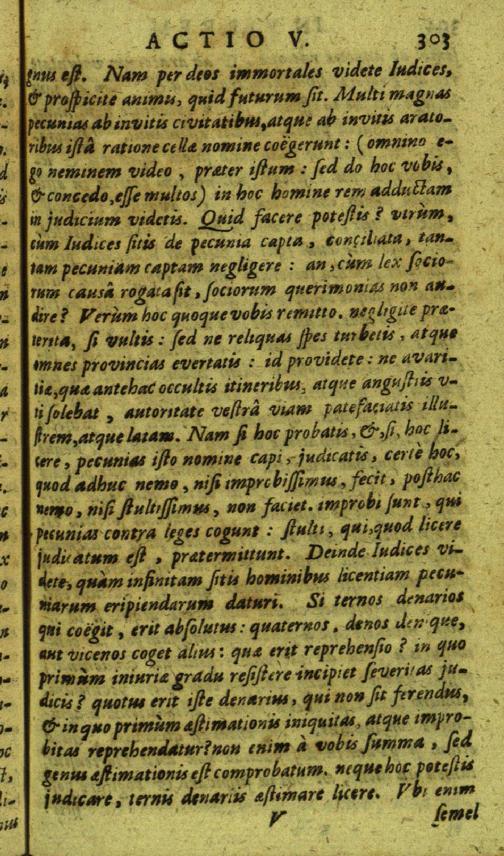 ACTIO V. 303
gnus est. Nam per deos immortales videte Iudices,
& prospicite animu, quid futurum sit. Multi magnas
pecunias ab invitis civitatibus, atque ab invitis arato-
ribus istâ ratione cellæ nomine coëgerunt: (omnino e-
go neminem video, præter istum: sed do hoc vobis,
& concedo, esse multos) in hoc homine rem adductam
in judicium videtis. Quid facere potestis? vtrùm,
cùm Iudices sitis de pecunia capta, conciliata, tan-
tam pecuniam captam negligere: an, cùm lex socio-
rum causâ rogata sit, sociorum querimonias non au-
dire? Verùm hoc quoque vobis remitto. negligite præ-
terita, si vultis: sed ne reliquas spes turbetis, atque
omnes provincias evertatis: id providete: ne avari-
tiæ, quæ antehac occultis itineribus, atque angustiis v-
ti solebat, autoritate vestrâ viam patefaciatis illu-
strem, atque latam. Nam si hoc probatis, &, si, hoc li-
cere, pecunias isto nomine capi, judicatis, certè hoc,
quod adhuc nemo, nisi improbissimus, fecit, posthac
nemo, nisi stultissimus, non faciet. improbi sunt, qui
pecunias contra leges cogunt: stulti, qui, quod licere
judicatum est, prætermittunt. Deinde Iudices vi-
dete, quàm infinitam sitis hominibus licentiam pecu-
niarum eripiendarum daturi. Si ternos denarios
qui coëgit, erit absolutus: quaternos, denos denique,
aut vicenos coget alius: quæ erit reprehensio? in quo
primùm iniuriæ gradu resistere incipiet severitas ju-
dicis? quotus erit iste denarius, qui non sit ferendus,
& in quo primùm æstimationis iniquitas, atque impro-
bitas reprehendatur? non enim à vobis summa, sed
genus æstimationis est comprobatum. neque hoc potestis
judicare, ternis denariis æstimare licere. Vbi enim
V semel